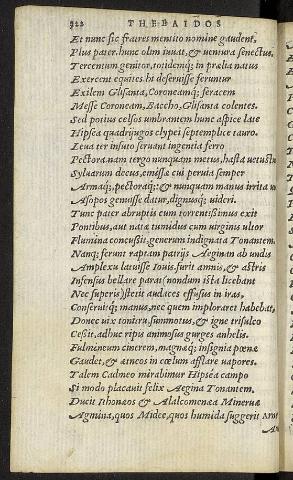 322 THEBAIDOS
Et nunc sic fratres mentito nomine gaudent,
Plus pater hunc olim iuuat, & uentura senectus.
Tercentum genitor, totidemq; in prælia natus
Exercent equites. hi deseruisse feruntur
Exilem Glisanta, Coroneamq; feracem
Messe Coroneam, Baccho, Glisanta colentes.
Sed potius celsos umbrantem hunc aspice late
Hipsea quadrijugos clypei septemplice tauro.
Leua ter insuto seruant ingentia ferro
Pectora. nam tergo nunquam metus, hasta uetustu
Syluarum decus, emissæ cui peruia semper
Armaq;, pectoraq;: & nunquam manus irrita uo
Asopos genuisse datur, dignusq; uideri.
Tunc pater abruptis cum torrentissimus exit
Pontibus, aut natæ tumidus cum uirginis ultor
Flumina concussit. generum indignata Tonantem.
Nanq; ferunt raptam patrijs Aeginan ab undis
Amplexu latuisse Iouis. furit amnis, & astris
Infensus bellare parat (nondum ista licebant
Nec superis) stetit audaces effusus in iras,
Conseruitq; manus, nec quem imploraret habebat,
Donec uix tonitru, summotus, & igne trisulco
Cessit. adhuc ripis animosus gurges anhelis.
Fulmineum cinerem, magnæq; insignia pœnæ
Gaudet, & ætneos in cœlum afflare uapores.
Talem Cadmeo mirabimur Hipsea campo
Si modo placauit felix Aegina Tonantem.
Ducit Ithonæos & Alalcomenæa Mineruæ
Agmina, quos Midee, quos humida suggerit Arne